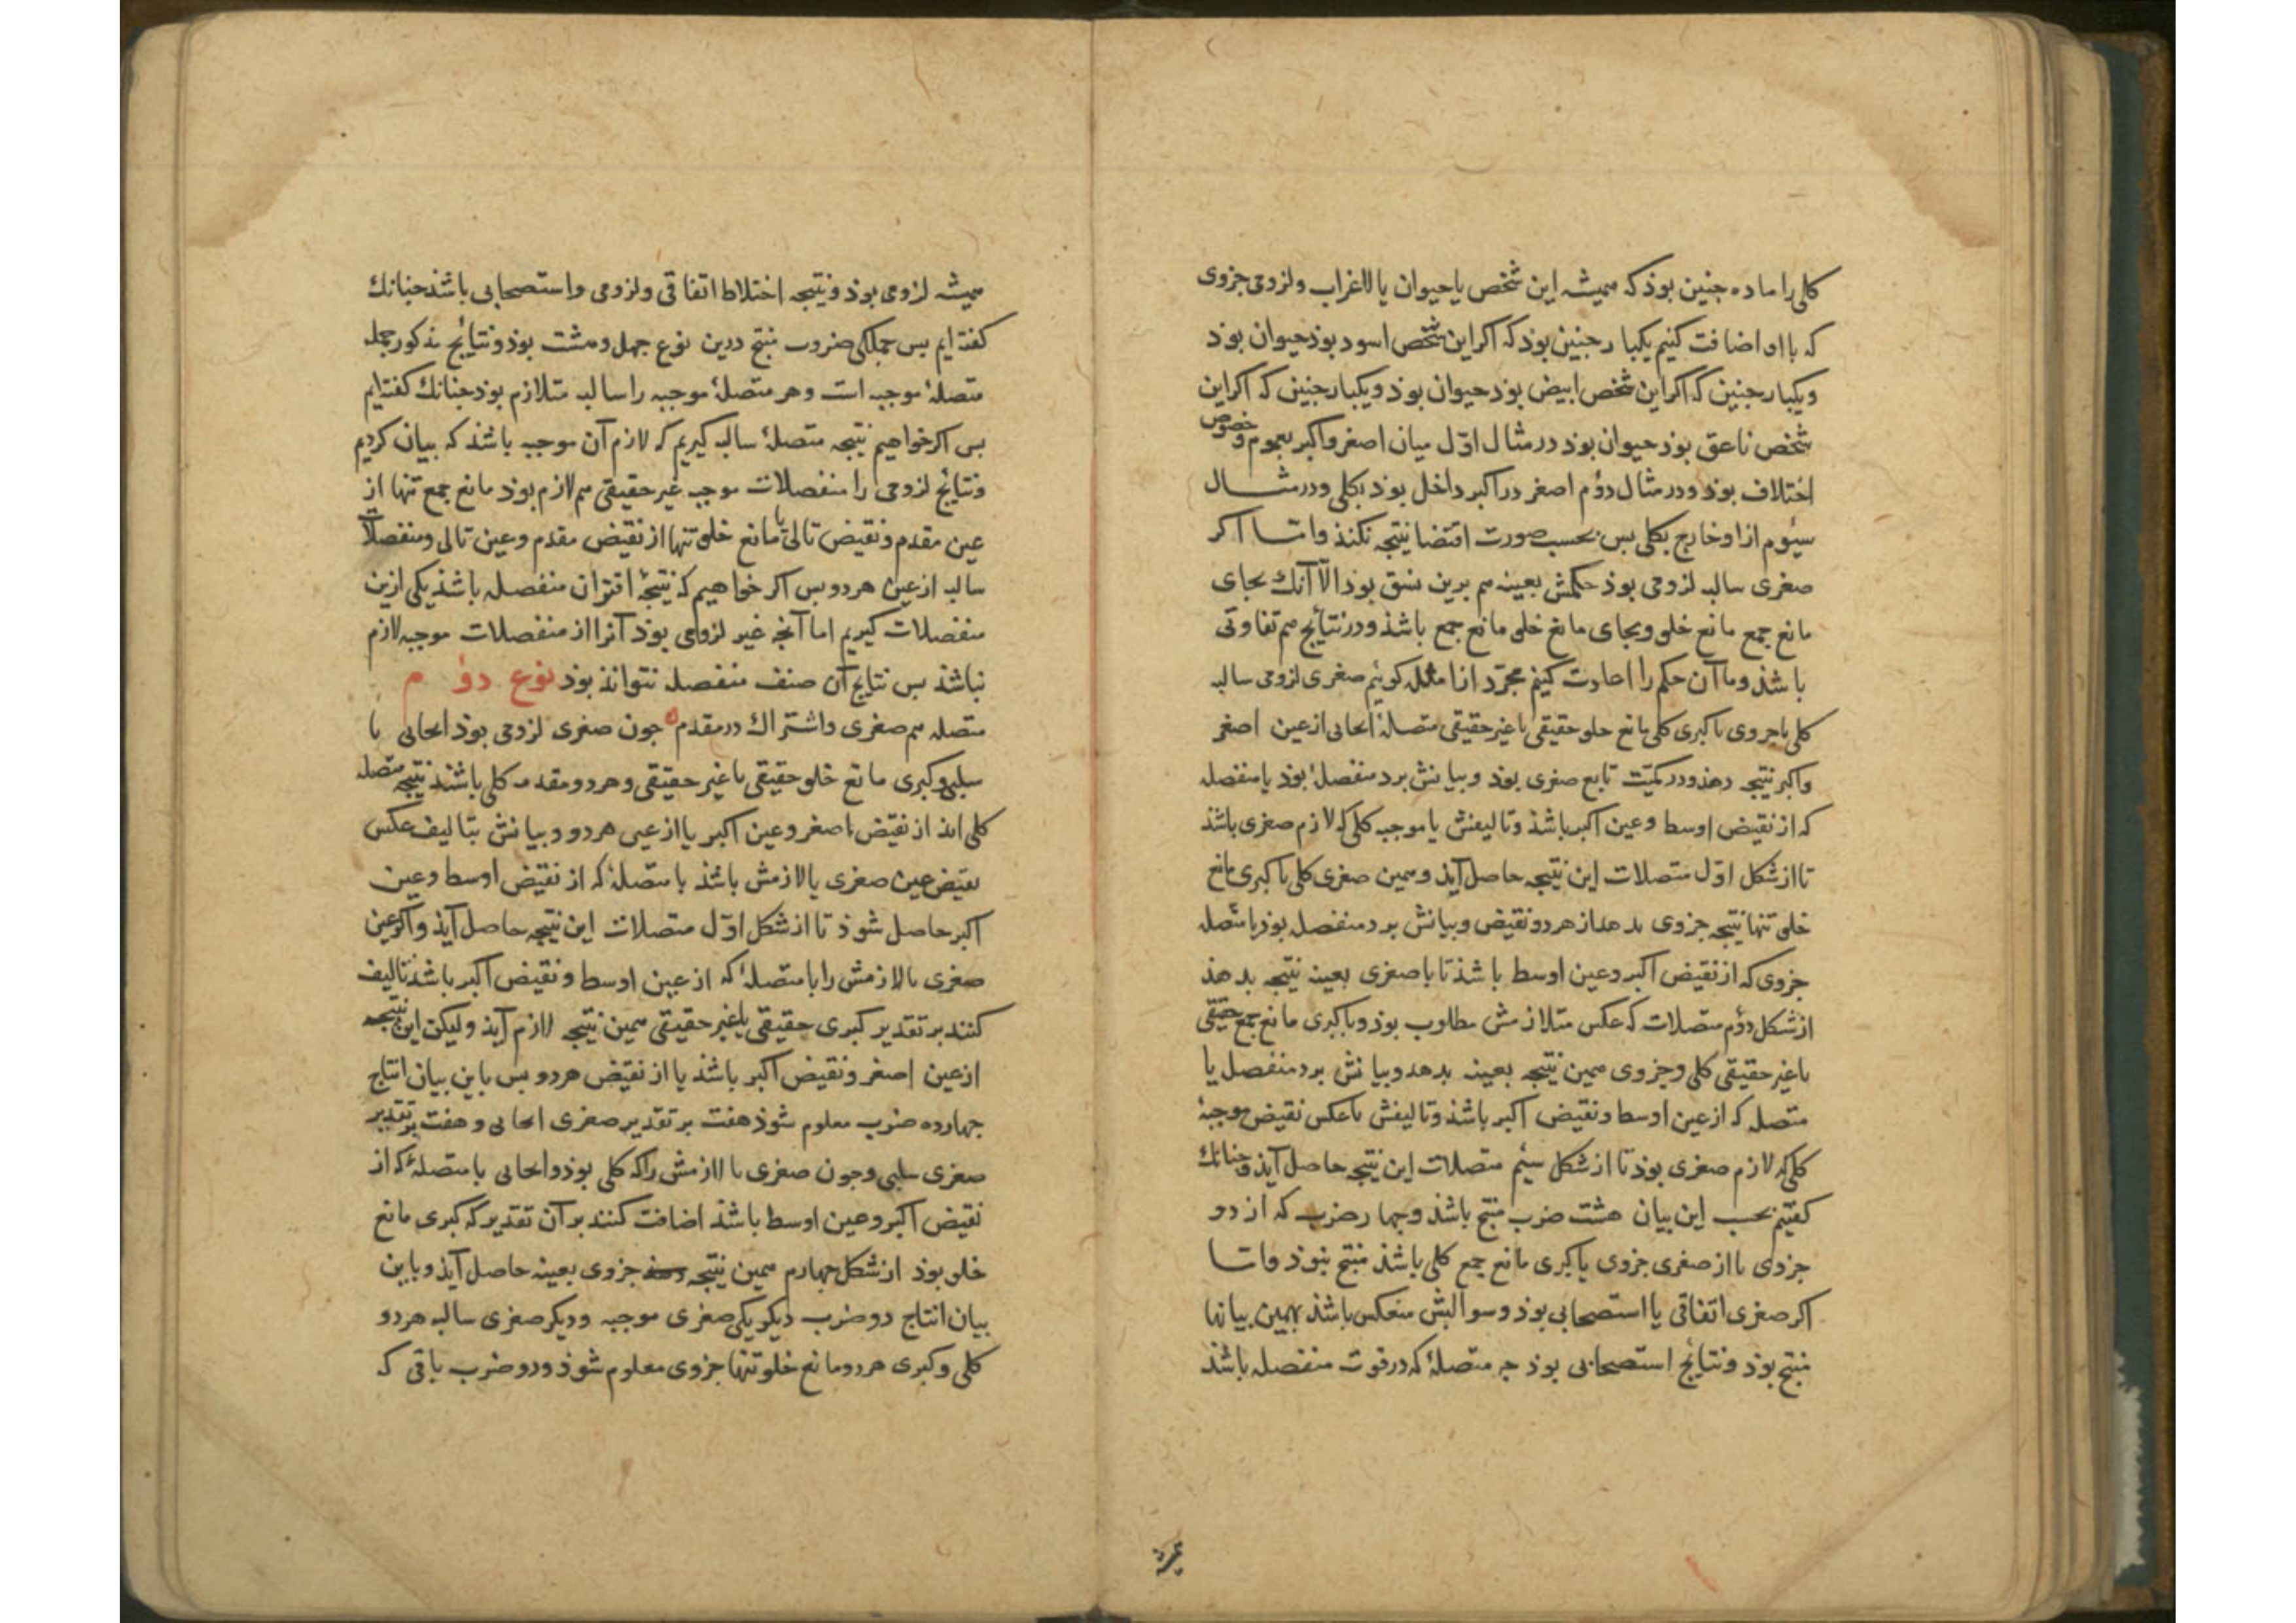 کلی را ماده جنین بوذ که همیشه این شخص یا حیوان یا لاغراب ولزومی جزوی
که با او اضافت کنیم یکبار جنین بوذ که اکر این شخص اسود بوذ حیوان بوذ
ویکبار جنین که اکر این شخص ابیض بوذ حیوان بوذ ویکبار جنین که اکر این
شخص ناعق بوذ حیوان بوذ در مثال اوّل میان اصغر واکبر بعموم وخصوص
اختلاف بوذ ودر مثال دؤم اصغر در اکبر داخل بوذ بکلی ودر مثال
سیٔوم از او خارج بکلی بس بحسب صورت اقتضا نتیجه نکند واما اکر
صغری سالبه لزومی بوذ حکمش بعینه هم برین نسق بوذ الّا آنک بجای
مانع جمع مانع خلو وبجای مانع خلو مانع جمع باشذ ودر نتایٔج هم تفاوتی
باشذ وما آن حکم را اعادت کنیم مجرّد از امثله کویٔیم صغری لزومی سالبه
کلی یا جزوی با کبری کلی مانع خلو حقیقی یا غیر حقیقی متصلهٔ ایجابی از عین اصغر
واکبر نتیجه دهذ ودر کمیّت تابع صغری بوذ وبیانش برد منفصلهٔ بوذ یا منفصله
که از نقیض اوسط وعین اکبر باشذ وتالیفش با موجبه کلی که لازم صغری باشذ
تا از شکل اوّل متصلات این نتیجه حاصل آیذ وهمین صغری کلی با کبری مانع
خلو تنها نتیجه جزوی بدهذ از هر دو نقیض وبیانش برد منفصل بوذ با متصله
جزوی که از نقیض اکبر وعین اوسط باشذ تا با صغری بعینه نتیجه بدهذ
از شکل دؤم متصلات که عکس متلازمش مطلوب بوذ وبا کبری مانع جمع حقیقی
یا غیر حقیقی کلی وجزوی همین نتیجه بعینه بدهذ وبیانش برد منفصل با
متصله که از عین اوسط ونقیض اکبر باشذ وتالیفش با عکس نقیض موجبهٔ
کلی که لازم صغری بوذ تا از شکل سیٔم متصلات این نتیجه حاصل آیذ وجنانک
کفتیم بحسب این بیان هشت ضرب منتج باشذ وجهار ضرب که از دو
جزوی یا از صغری جزوی با کبری مانع جمع کلی باشذ منتج نبوذ واما
اکر صغری اتفاقی یا استصحابی بوذ وسوالبش منعکس باشذ بهمین بیانها
منتج بوذ ونتایٔج استصحابی بوذ جه متصلهٔ که در قوت منفصله باشذ
همیشه لزومی بوذ ونتیجه اختلاط اتفاقی ولزومی واستصحابی باشذ جنانک
کفته ایم بس جملکی ضروب منتج درین نوع جهل وهشت بوذ ونتایٔج مذکور جمله
متصلهٔ موجبه است وهر متصلهٔ موجبه را سالبه متلازم بوذ جنانک کفته ایم
بس اکر خواهیم نتیجه متصلهٔ سالبه کیریم که لازم آن موجبه باشذ که بیان کردیم
ونتایٔج لزومی را منفصلات موجبه غیر حقیقی هم لازم بوذ مانع جمع تنها از
عین مقدم ونقیض تالی یا مانع خلو تنها از نقیض مقدم وعین تالی ومنفصلات
سالبه از عین هر دو بس اکر خواهیم که نتیجهٔ اقتران منفصله باشذ یکی ازین
منفصلات کیریم اما آنجه غیر لزومی بوذ آنرا از منفصلات موجبه لازم
نباشذ بس نتایج آن صنف منفصله نتواند بوذ نوع دؤم
متصله هم صغری واشتراک در مقدم جون صغری لزومی بوذ ایجابی یا
سلبی وکبری مانع خلو حقیقی یا غیر حقیقی وهر دو مقدمه کلی باشند نتیجه متصله
کلی آیذ از نقیض اصغر وعین اکبر یا از عین هر دو وبیانش بتالیف عکس
نقیض عین صغری یا لازمش باشذ با متصلهٔ که از نقیض اوسط وعین
اکبر حاصل شوذ تا از شکل اوّل متصلات این نتیجه حاصل آیذ واکر عین
صغری یا لازمش را با متصلهٔ که از عین اوسط ونقیض اکبر باشذ تالیف
کنند بر تقدیر کبری حقیقی یا غیر حقیقی همین نتیجه لازم آیذ ولیکن این نتیجه
از عین اصغر ونقیض اکبر باشذ یا از نقیض هر دو بس باین بیان انتاج
جهارده ضرب معلوم شوذ هفت بر تقدیر صغری ایجابی وهفت بر تقدیر
صغری سلبی وجون صغری یا لازمش را که کلی بوذ وایجابی با متصلهٔ که از
نقیض اکبر وعین اوسط باشذ اضافت کنند بر آن تقدیر که کبری مانع
خلو بوذ از شکل جهارم همین نتیجه جزوی بعینه حاصل آیذ وباین
بیان انتاج دو ضرب دیکر یکی صغری موجبه ودیکر صغری سالبه هر دو
کلی وکبری هر دو مانع خلو تنها جزوی معلوم شوذ ودو ضرب باقی که